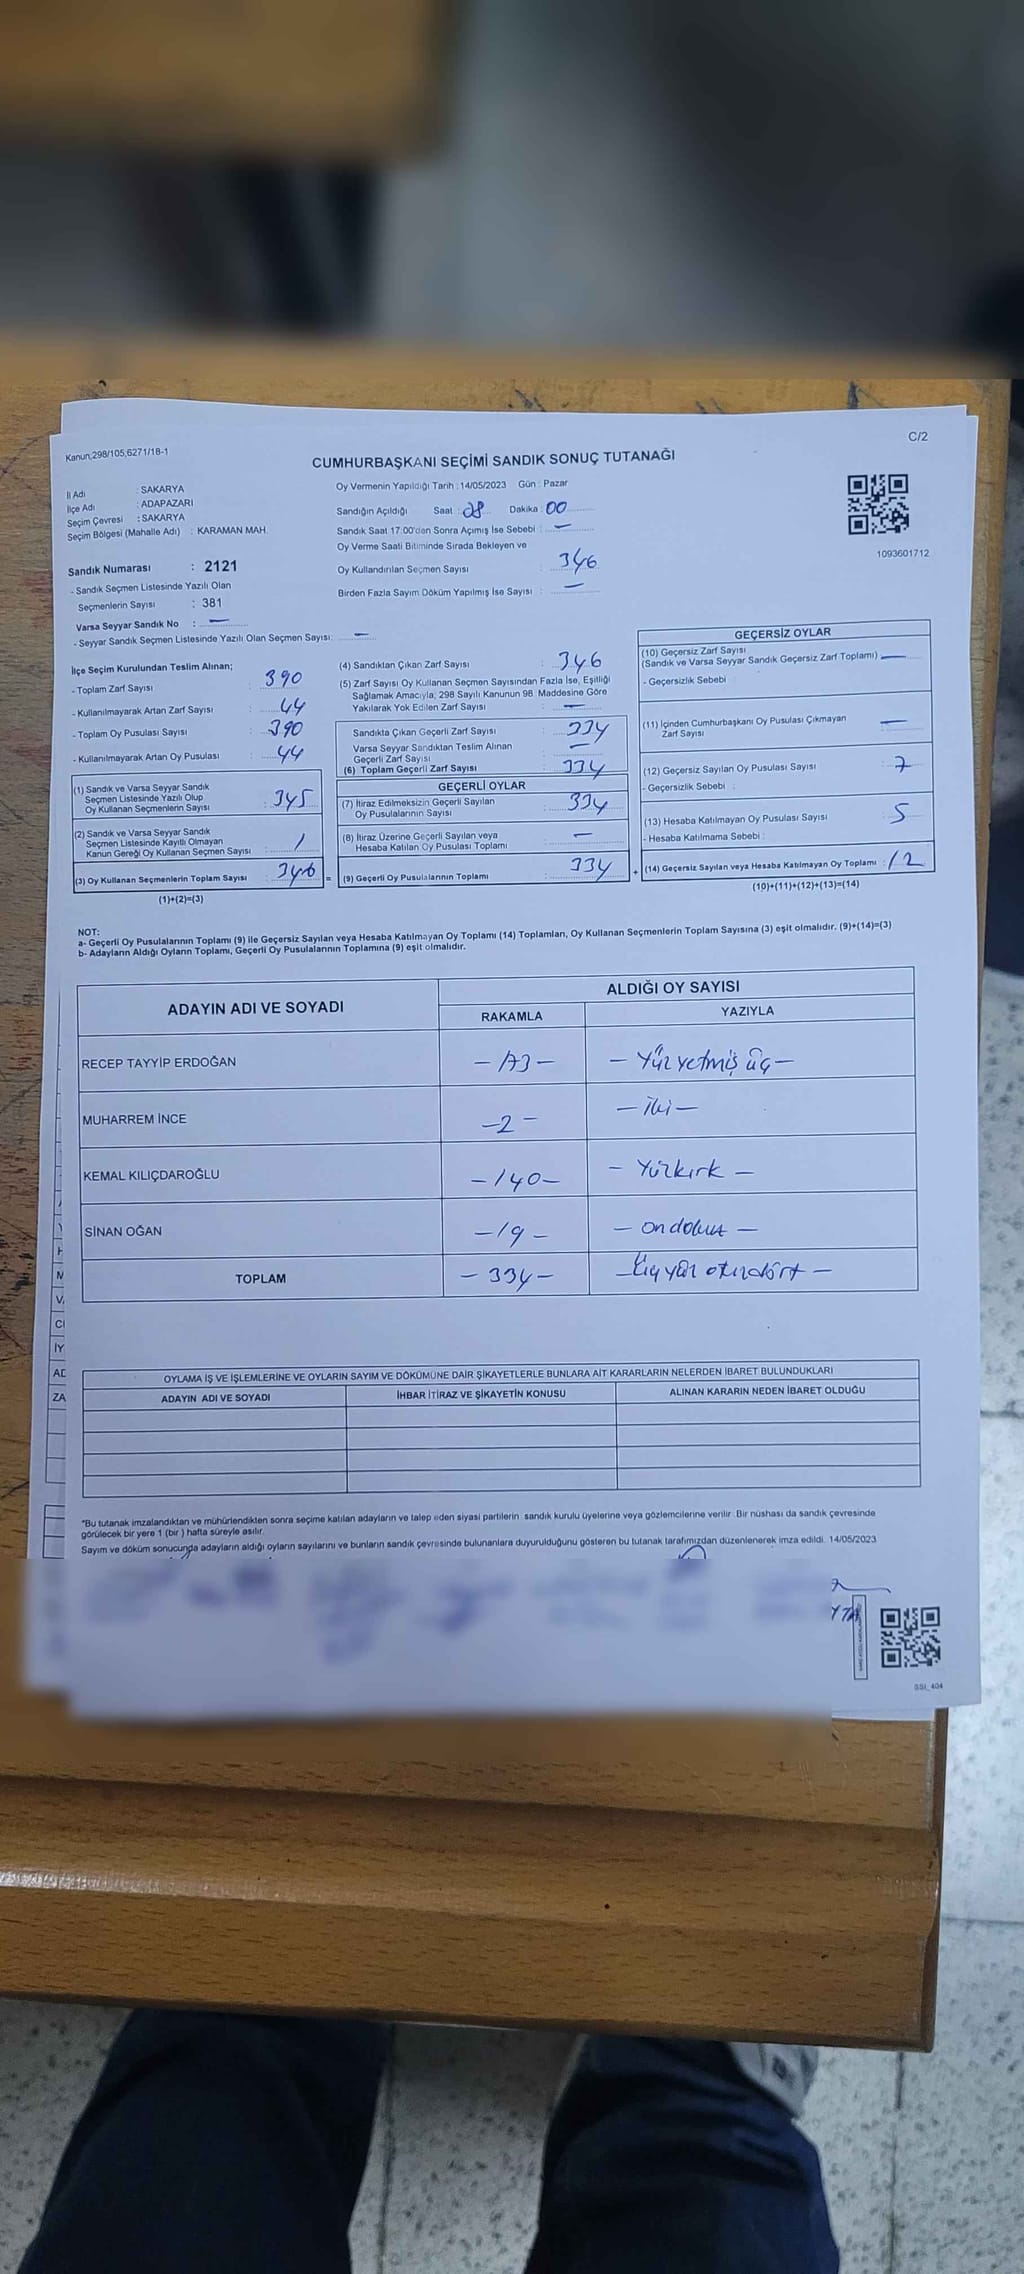 Kanun,298/105,6271/18-1
C/2
CUMHURBAŞKANI SEÇİMİ SANDIK SONUÇ TUTANAĞI
İl Adı : SAKARYA
İlçe Adı : ADAPAZARI
Seçim Çevresi : SAKARYA
Seçim Bölgesi (Mahalle Adı) : KARAMAN MAH.
Sandık Numarası : 2121
- Sandık Seçmen Listesinde Yazılı Olan
Seçmenlerin Sayısı : 381
Varsa Seyyar Sandık No : —
- Seyyar Sandık Seçmen Listesinde Yazılı Olan Seçmen Sayısı: —
Oy Vermenin Yapıldığı Tarih : 14/05/2023 Gün : Pazar
Sandığın Açıldığı Saat : 08 Dakika : 00
Sandık Saat 17:00'dan Sonra Açımış İse Sebebi : —
Oy Verme Saati Bitiminde Sırada Bekleyen ve
Oy Kullandırılan Seçmen Sayısı : 346
Birden Fazla Sayım Döküm Yapılmış İse Sayısı : —
1093601712
İlçe Seçim Kurulundan Teslim Alınan;
- Toplam Zarf Sayısı : 390
- Kullanılmayarak Artan Zarf Sayısı : 44
- Toplam Oy Pusulası Sayısı : 390
- Kullanılmayarak Artan Oy Pusulası : 44
(1) Sandık ve Varsa Seyyar Sandık
Seçmen Listesinde Yazılı Olup
Oy Kullanan Seçmenlerin Sayısı : 345
(2) Sandık ve Varsa Seyyar Sandık
Seçmen Listesinde Kayıtlı Olmayan
Kanun Gereği Oy Kullanan Seçmen Sayısı : 1
(3) Oy Kullanan Seçmenlerin Toplam Sayısı : 346 =
(1)+(2)=(3)
(4) Sandıktan Çıkan Zarf Sayısı : 346
(5) Zarf Sayısı Oy Kullanan Seçmen Sayısından Fazla İse, Eşitliği
Sağlamak Amacıyla, 298 Sayılı Kanunun 98. Maddesine Göre
Yakılarak Yok Edilen Zarf Sayısı : —
Sandıkta Çıkan Geçerli Zarf Sayısı : 334
Varsa Seyyar Sandıktan Teslim Alınan
Geçerli Zarf Sayısı : —
(6) Toplam Geçerli Zarf Sayısı : 334
GEÇERLİ OYLAR
(7) İtiraz Edilmeksizin Geçerli Sayılan
Oy Pusulalarının Sayısı : 334
(8) İtiraz Üzerine Geçerli Sayılan veya
Hesaba Katılan Oy Pusulası Toplamı : —
(9) Geçerli Oy Pusulalarının Toplamı : 334 +
GEÇERSİZ OYLAR
(10) Geçersiz Zarf Sayısı
(Sandık ve Varsa Seyyar Sandık Geçersiz Zarf Toplamı) : —
- Geçersizlik Sebebi :
(11) İçinden Cumhurbaşkanı Oy Pusulası Çıkmayan
Zarf Sayısı : —
(12) Geçersiz Sayılan Oy Pusulası Sayısı : 7
- Geçersizlik Sebebi :
(13) Hesaba Katılmayan Oy Pusulası Sayısı : 5
- Hesaba Katılmama Sebebi :
(14) Geçersiz Sayılan veya Hesaba Katılmayan Oy Toplamı : 12
(10)+(11)+(12)+(13)=(14)
NOT:
a- Geçerli Oy Pusulalarının Toplamı (9) ile Geçersiz Sayılan veya Hesaba Katılmayan Oy Toplamı (14) Toplamları, Oy Kullanan Seçmenlerin Toplam Sayısına (3) eşit olmalıdır. (9)+(14)=(3)
b- Adayların Aldığı Oyların Toplamı, Geçerli Oy Pusulalarının Toplamına (9) eşit olmalıdır.
ADAYIN ADI VE SOYADI
ALDIĞI OY SAYISI
RAKAMLA
YAZIYLA
RECEP TAYYİP ERDOĞAN – 173 – – Yüz yetmiş üç –
MUHARREM İNCE – 2 – – İki –
KEMAL KILIÇDAROĞLU – 140 – – Yüzkırk –
SİNAN OĞAN – 19 – – on dokuz –
TOPLAM – 334 – – Üçyüz otuzdört –
OYLAMA İŞ VE İŞLEMLERİNE VE OYLARIN SAYIM VE DÖKÜMÜNE DAİR ŞİKAYETLERLE BUNLARA AİT KARARLARIN NELERDEN İBARET BULUNDUKLARI
ADAYIN ADI VE SOYADI
İHBAR İTİRAZ VE ŞİKAYETİN KONUSU
ALINAN KARARIN NEDEN İBARET OLDUĞU
M
V.
İY
AD
ZA
*Bu tutanak imzalandıktan ve mühürlendikten sonra seçime katılan adayların ve talep eden siyasi partilerin sandık kurulu üyelerine veya gözlemcilerine verilir. Bir nüshası da sandık çevresinde
görülecek bir yere 1 (bir) hafta süreyle asılır.
Sayım ve döküm sonucunda adayların aldığı oyların sayılarını ve bunların sandık çevresinde bulunanlara duyurulduğunu gösteren bu tutanak tarafımızdan düzenlenerek imza edildi. 14/05/2023
SSI_404